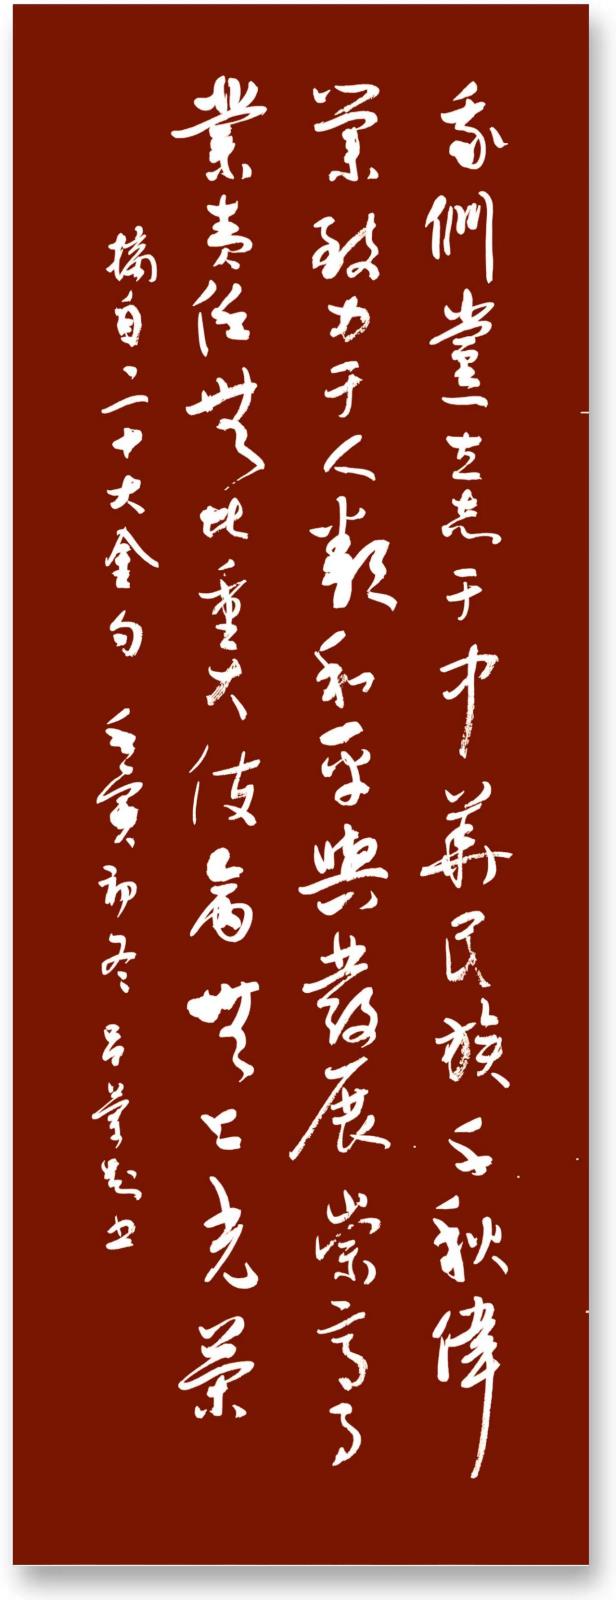 我們黨立志于中華民族千秋偉
業致力于人類和平與發展崇高事
業責任無比重大使命無上光榮
摘自二十大金句 壬寅初冬 呂書